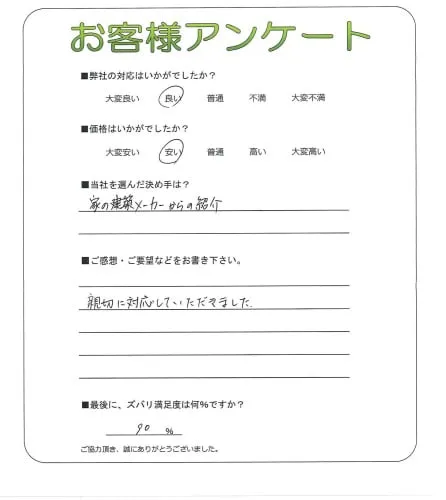 お客様アンケート
■弊社の対応はいかがでしたか?
大変良い 良い 普通 不満 大変不満
■価格はいかがでしたか?
大変安い 安い 普通 高い 大変高い
■当社を選んだ決め手は?
家の建築メーカーからの紹介
■ご感想・ご要望などをお書き下さい。
親切に対応していただきました。
■最後に、ズバリ満足度は何%ですか?
90 %
ご協力頂き、誠にありがとうございました。